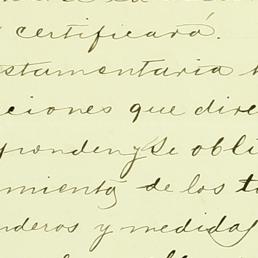 certificará.
estamentaria
ciones que dire
ponden y se obli
miento de los t
nderos y medidas